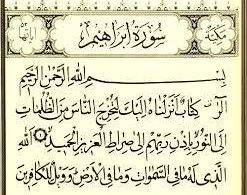 مكية سُورَةُ إِبْرَاهِيمَ آياتها ٥٢
بِسْمِ اللَّهِ الرَّحْمَنِ الرَّحِيمِ
الٓر كِتَابٌ أَنْزَلْنَاهُ إِلَيْكَ لِتُخْرِجَ النَّاسَ مِنَ الظُّلُمَاتِ
إِلَى النُّورِ بِإِذْنِ رَبِّهِمْ إِلَى صِرَاطِ الْعَزِيزِ الْحَمِيدِ اللَّهِ
الَّذِي لَهُ مَا فِي السَّمَوَاتِ وَمَا فِي الْأَرْضِ وَوَيْلٌ لِلْكَافِرِينَ